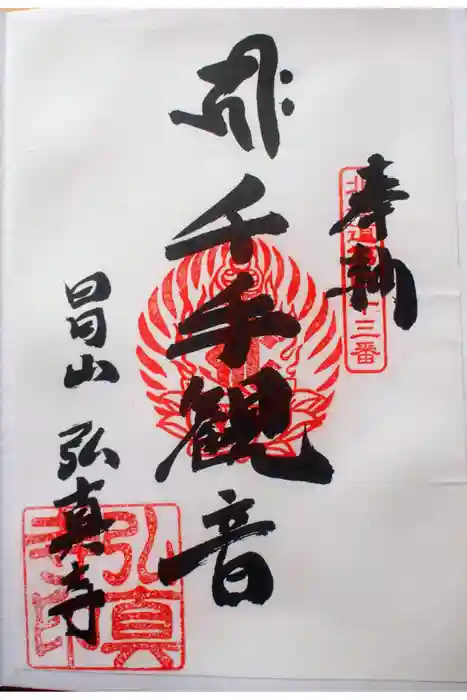 奉納
三番
千手観音
昌山 弘真寺
弘真
印